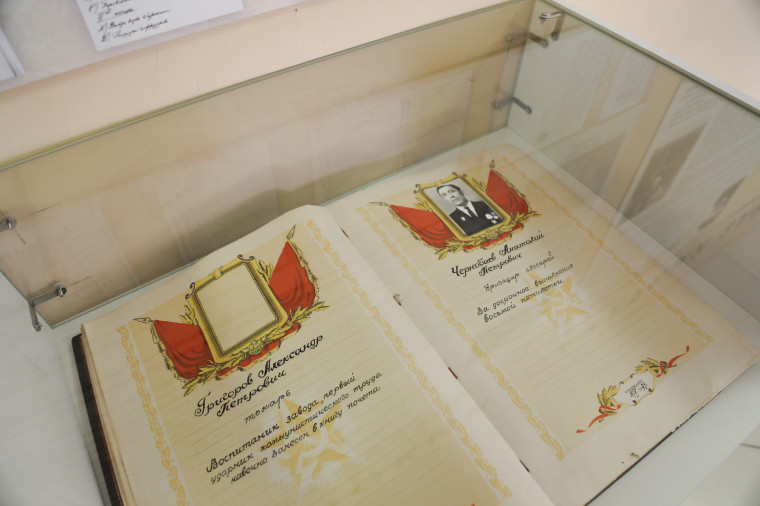 Григоров Александр
Петрович
токарь
Воспитаник завода, первый
ударник коммунистического труда
навечно занесен в книгу почета.
Чернобаев Анатолий
Петрович
бригадир слесарей
За досрочное выполнение
восьмой пятилетки